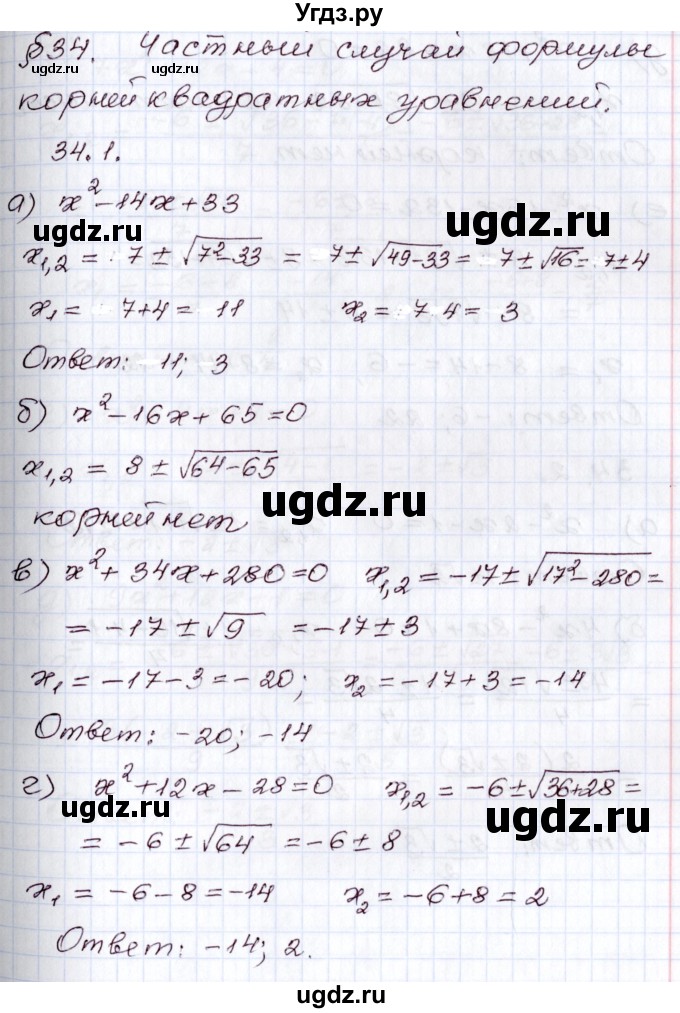 Угдз.ру
§34. Частный случай формулы
корней квадратных уравнений.
34.1.
а) x² - 14x + 33
ugdz.ru ugdz.ru
x₁,₂ = 7 ± √7² - 33 = 7 ± √49 - 33 = 7 ± √16 = 7 ± 4
x₁ = 7 + 4 = 11 x₂ = 7 4 = 3
Ответ: 11; 3
б) x² - 16x + 65 = 0
x₁,₂ = 8 ± √64 - 65
ugdz.ru ugdz.ru
корней нет
в) x² + 34x + 280 = 0 x₁,₂ = -17 ± √17² - 280 =
= -17 ± √9 = -17 ± 3
x₁ = -17 - 3 = -20; x₂ = -17 + 3 = -14
Ответ: -20; -14
г) x² + 12x - 28 = 0 x₁,₂ = -6 ± √36 + 28 =
ugdz.ru ugdz.ru
= -6 ± √64 = -6 ± 8
x₁ = -6 - 8 = -14 x₂ = -6 + 8 = 2
Ответ: -14; 2.
ugdz.ru